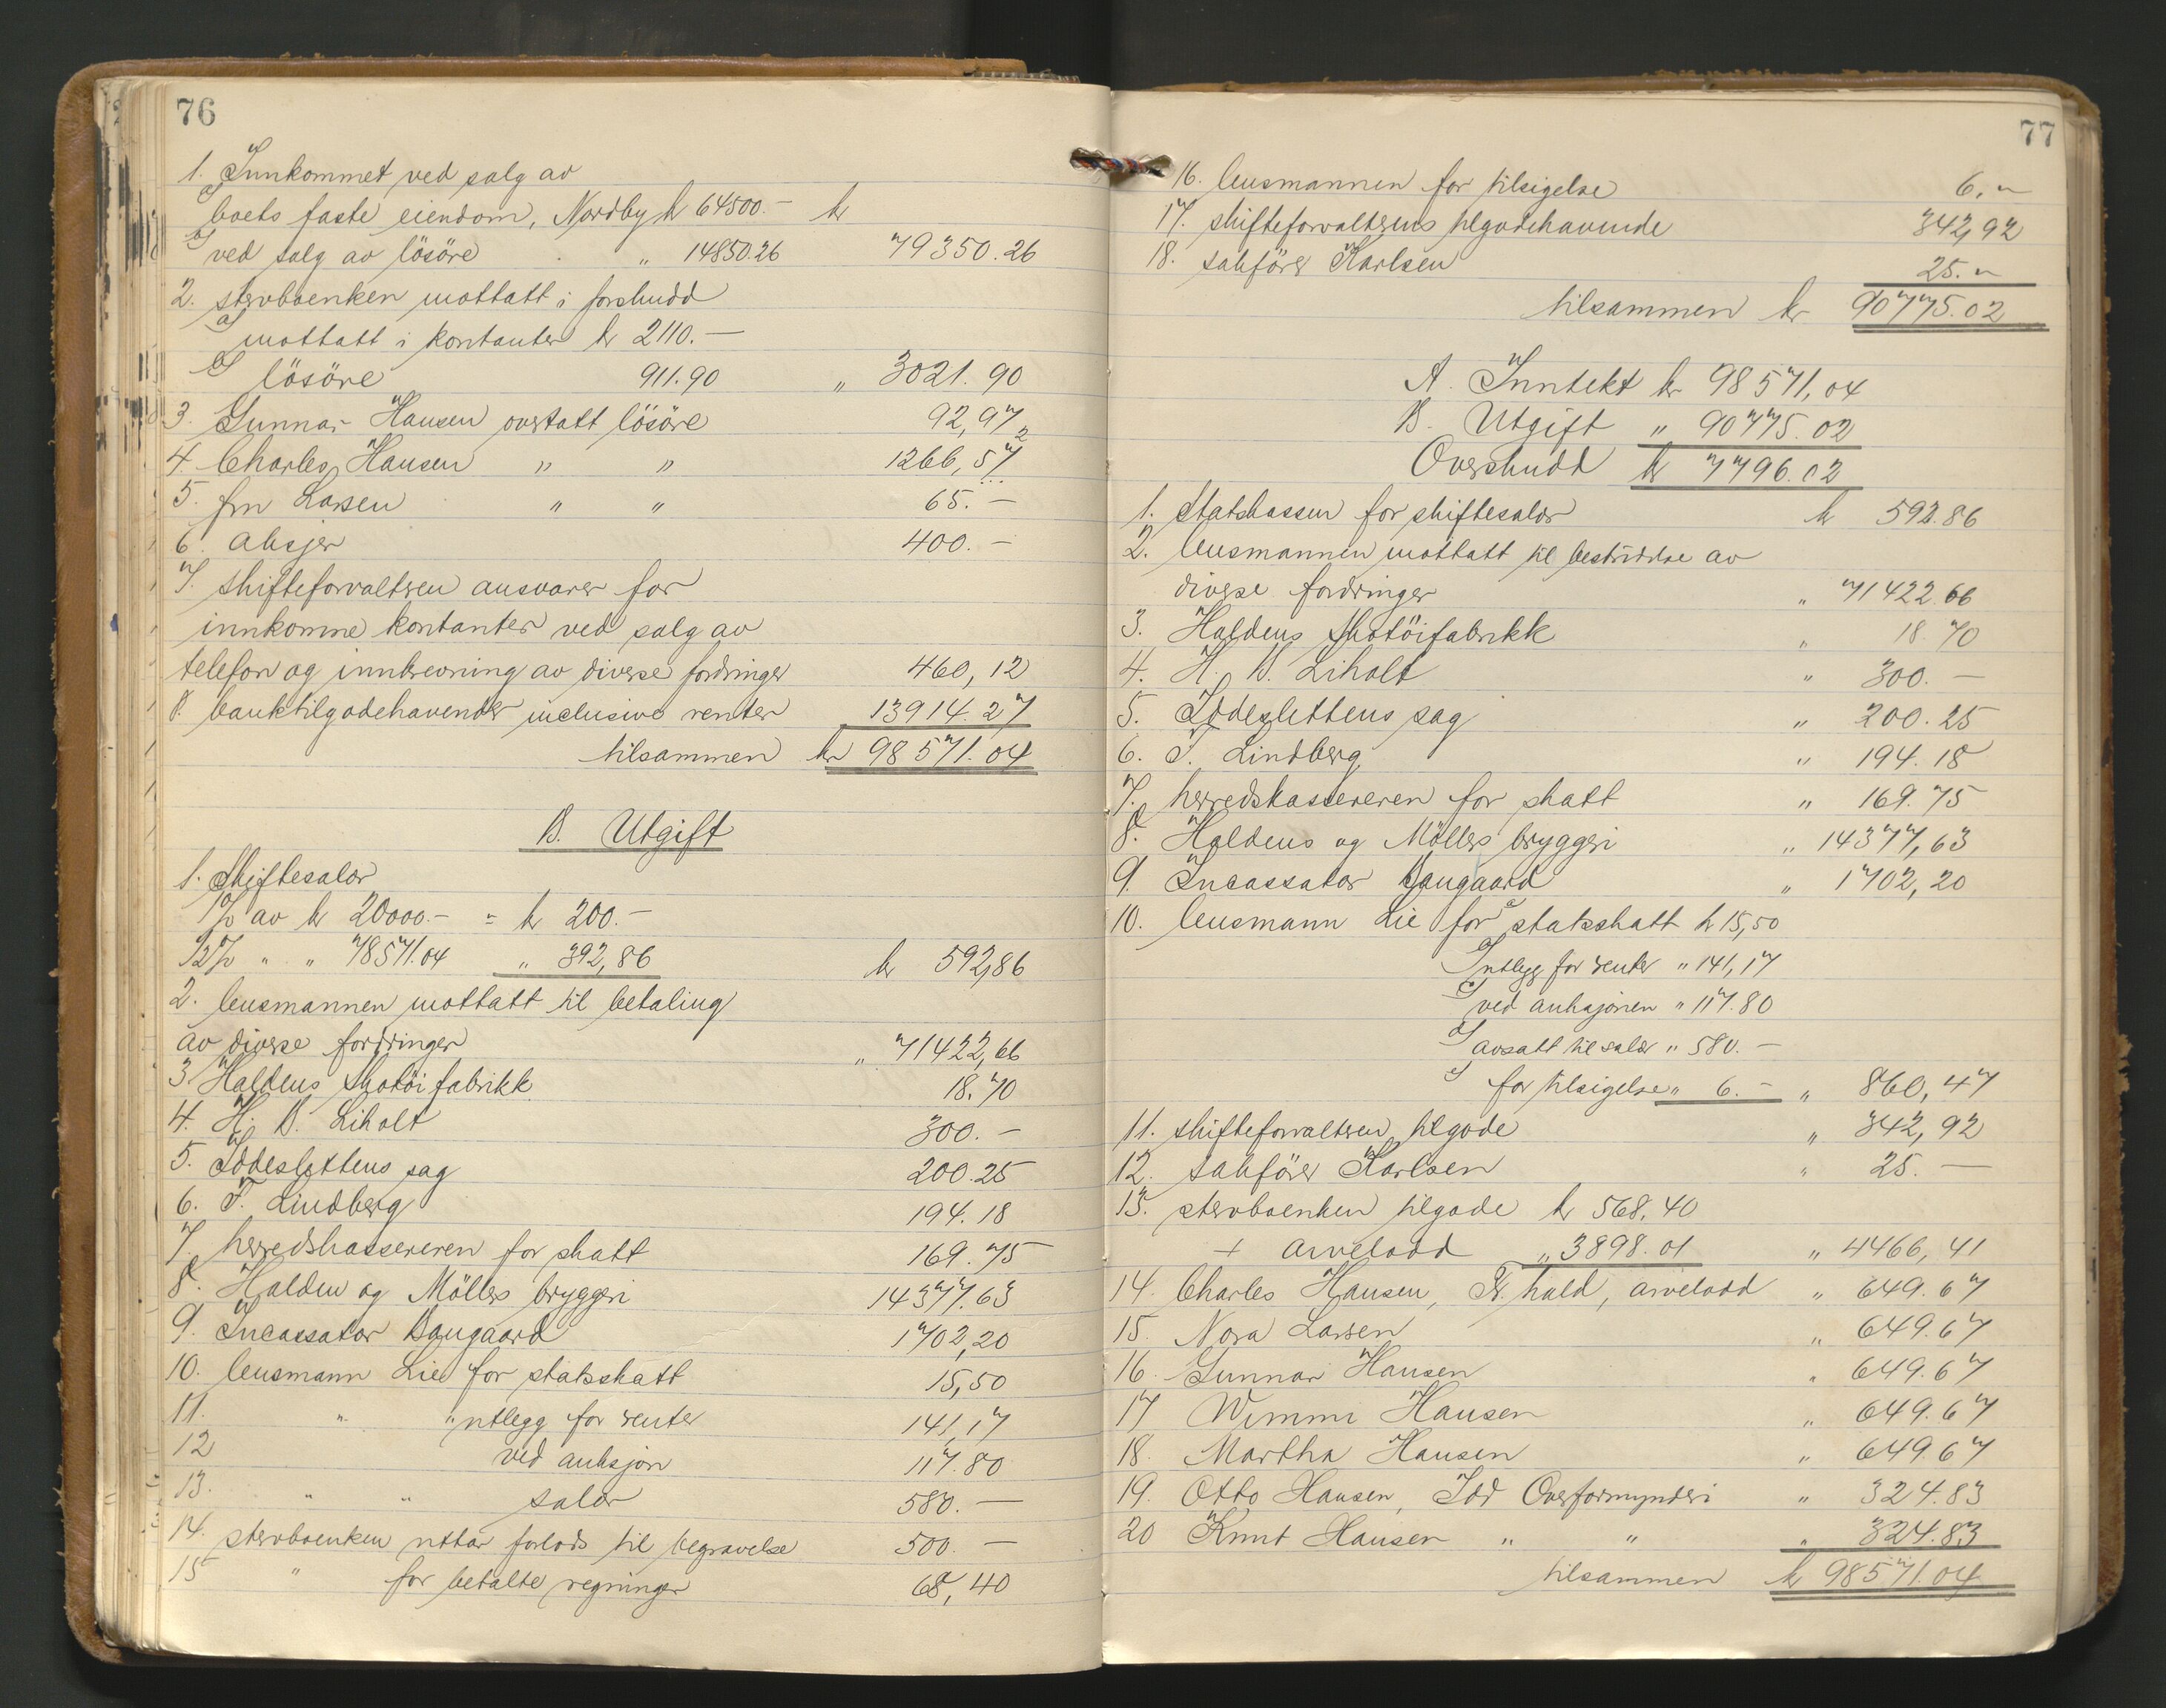 76
1. Innkommet ved salg av
a) boets faste eiendom, Nordby kr 64500.- kr
b) ved salg av lösöre " 14850.26 79350.26
2. stervboenken mottatt i forskudd
a) mottatt i kontanter kr 2110.-
b) lösöre 911.90 " 3021.90
3. Gunnar Hansen overtatt lösöre 92,97
4. Charles Hansen " " 1266,52
5. fru Larsen " " 65.-
6. aksjer 400.-
7. skifteforvalteren ansvarer for
innkomne kontanter ved salg av
telefon og innkrevning av diverse fordringer 460,12
8. banktilgodehavender inclusive renter 13914.27
tilsammen kr 98571.04
B. Utgift
1. Skiftesalær
1% av kr 20000.- = kr 200.-
1/2% " " 78571.04 " 392,86 kr 592,86
2. lensmannen mottatt til betaling
av diverse fordringer " 71422,66
3. Haldens skotöifabrikk 18.70
4. H. B. Liholt 300.-
5. Iddeslettens sag 200.25
6. F. Lindberg 194.18
7. herredskassereren for skatt 169.75
8. Halden og Möllers bryggeri 14377.63
9. Incassator Baugaard 1702,20
10. lensmann Lie for statsskatt 15,50
11. " " utlegg for renter 141,17
12 ved auksjon 117.80
13. " " salær 580.-
14. stervboenken uttar forlods til begravelse 500.-
15 " for betalte regninger 68,40
77
16. lensmannen for tilsigelse 6.-
17. skifteforvalterens tilgodehavende 342,92
18. sakförer Karlsen 25.-
tilsammen kr 90775.02
A. Inntekt kr 98571,04
B. Utgift " 90775.02
Overskudd kr 7796.02
1. Statskassen for skiftesalær kr 592.86
2. lensmannen mottatt til bestridelse av
diverse fordringer " 71422.66
3. Haldens skotöifabrikk " 18.70
4. H. B. Liholt " 300.-
5. Iddeslettens sag " 200.25
6. F. Lindberg " 194.18
7. herredskassereren for skatt " 169.75
8. Haldens og Möllers bryggeri " 14377,63
9. Incassator Baugaard " 1702,20
10. lensmann Lie for a) statsskatt kr 15,50
b) utlegg for renter " 141,17
c) ved auksjonen " 117.80
d) avsatt til salær " 580.-
e) for tilsigelse " 6.- " 860,47
11. skifteforvalteren tilgode " 342,92
12. sakförer Karlsen " 25.-
13. stervboenken tilgode kr 568,40
+ arvelodd " 3898.01 " 4466,41
14. Charles Hansen, Fr.hald, arvelodd " 649.67
15. Nora Larsen " 649.67
16 Gunnar Hansen " 649.67
17 Wimmi Hansen " 649.67
18. Martha Hansen " 649.67
19. Otto Hansen, Idd Overformynderi " 324.83
20 Knut Hansen " " " 324.83
tilsammen kr 98571.04